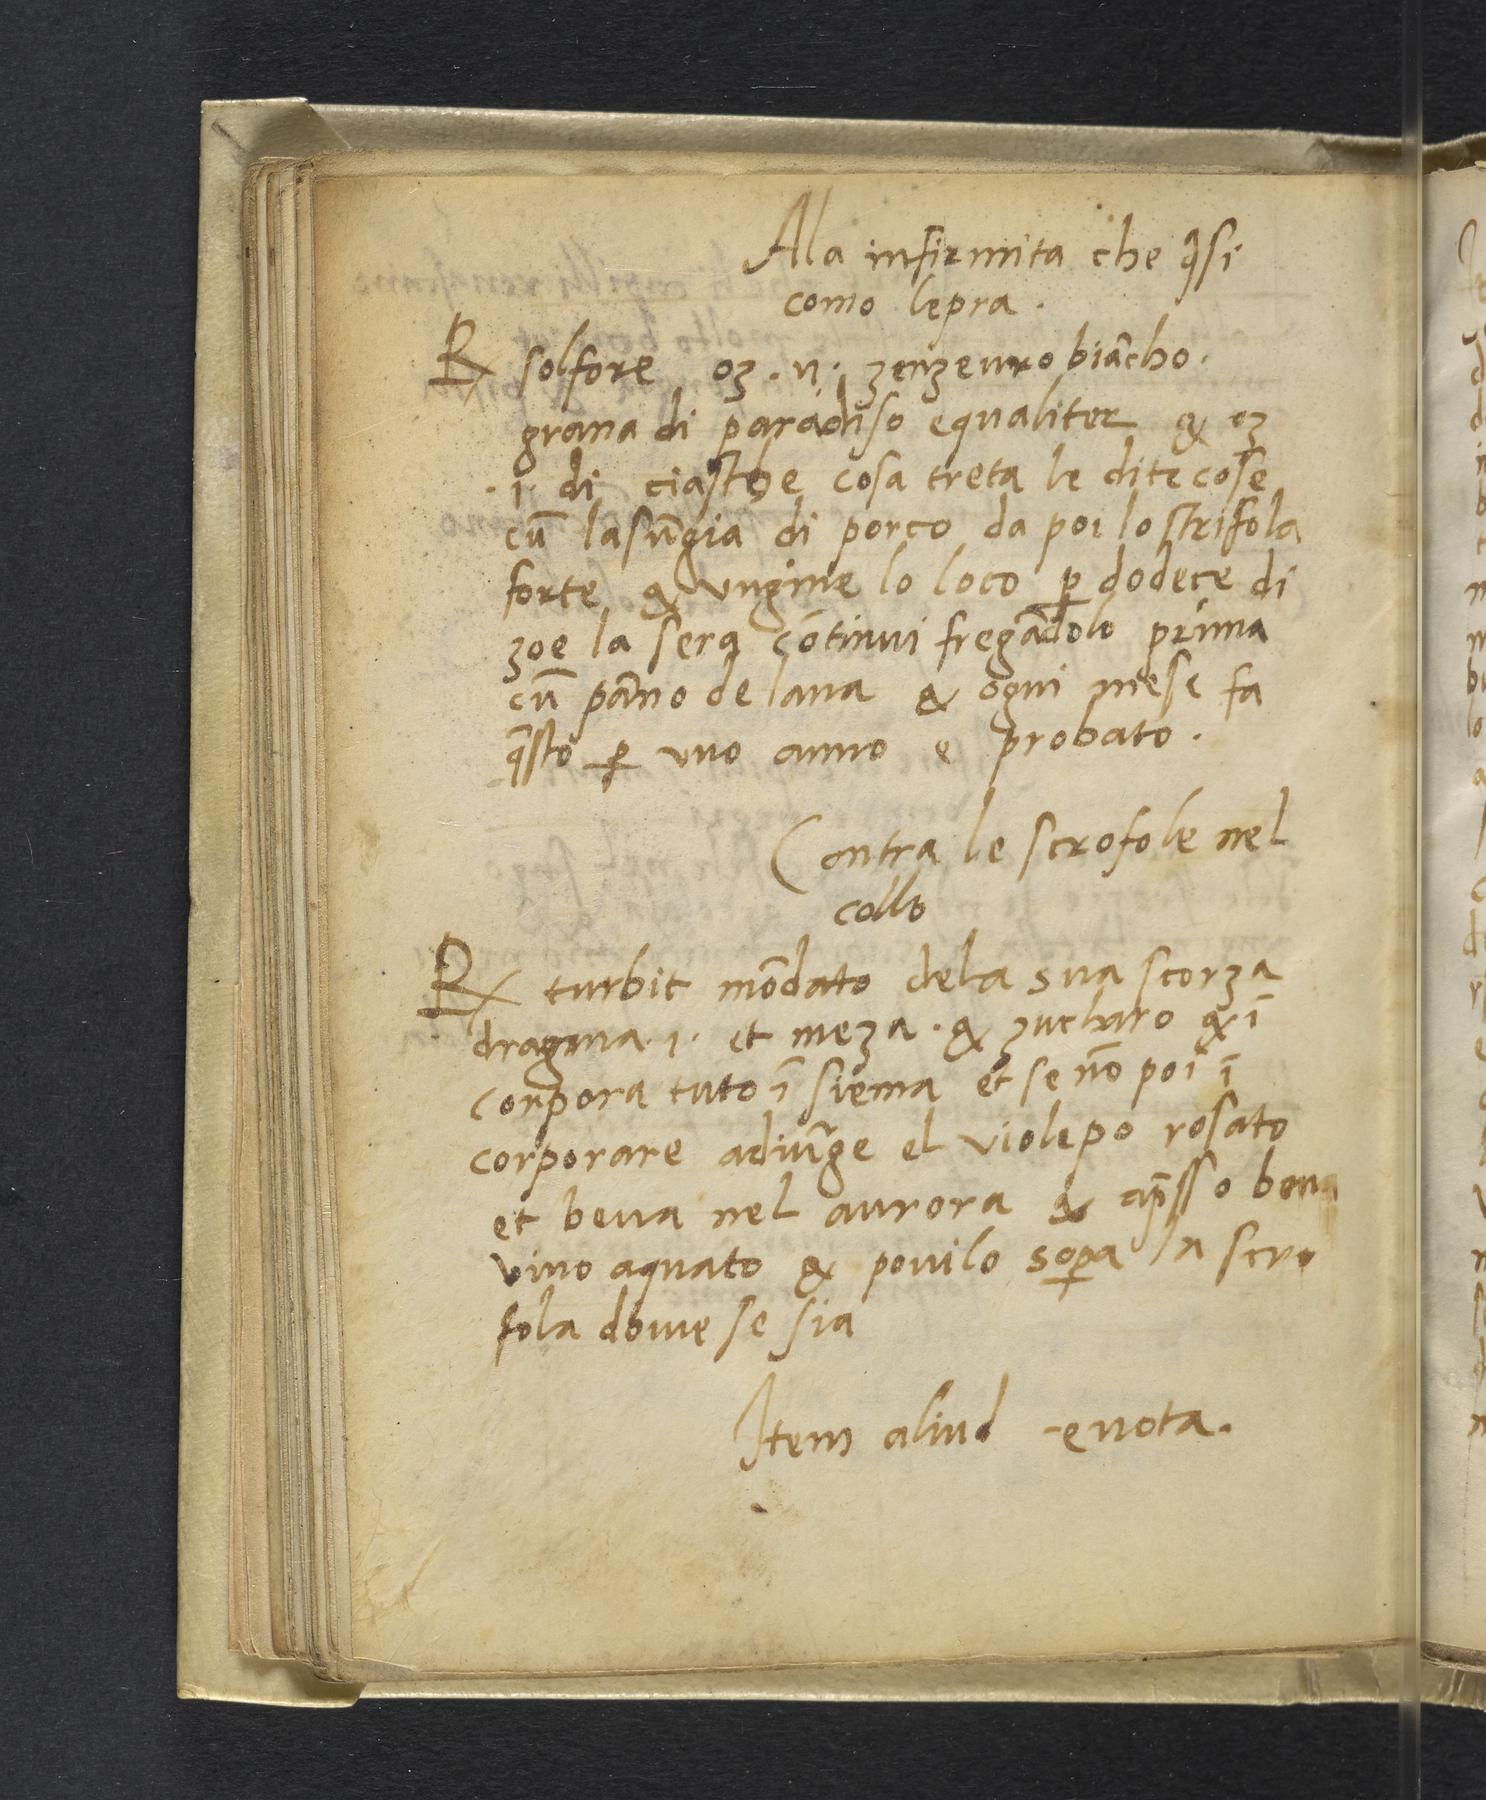 Ala infirmita che q̃si
como lepra.
℞ solfore oȝ . ij . zenzeuro biãcho.
grana di paradiso equaliter & oȝ
.i. di ciasche cosa treta le dite cose
cũ lasũgia di porco da poi lo strifola
forte & ungine lo loco p̱ dodece di
zoe la sera cõtinui fregãdolo prima
cũ pãno de lana & ogni mese fa
q̃sto p̱ uno anno e probato.
Contra le scrofole nel
collo
℞ turbit mõdato dela sua scorza
dragma .i. et meza . & zucharo & ĩ
corpora tuto ĩ siema et se nõ poi ĩ
corporare adiũge el violepo rosato
et beua nel aurora & ap̃sso beua
vino aquato & ponilo sop̱a la scro
fola doue se sia
Item aliud - enota.